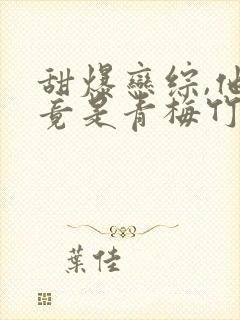 甜爆恋综,他
竟是青梅竹
葉佳